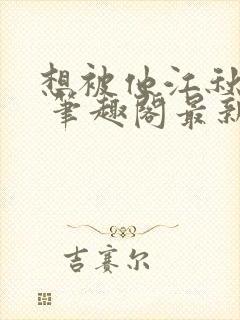 想被他江秋
笔趣阁最新
吉赛尔